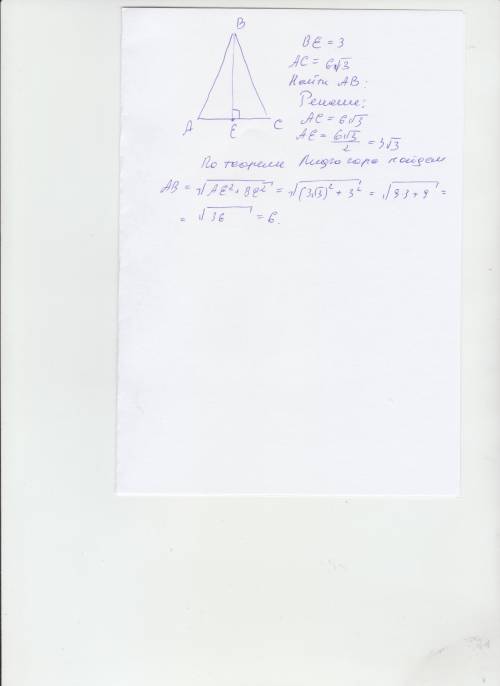 B
A E C
BE = 3
AC = 6√3
Найти AB:
Решение:
AC = 6√3
AE = 6√3/2 = 3√3
По теореме Пифагора найдем
AB = √AE²+BE² = √(3√3)²+3² = √9·3+9 =
= √36 = 6.